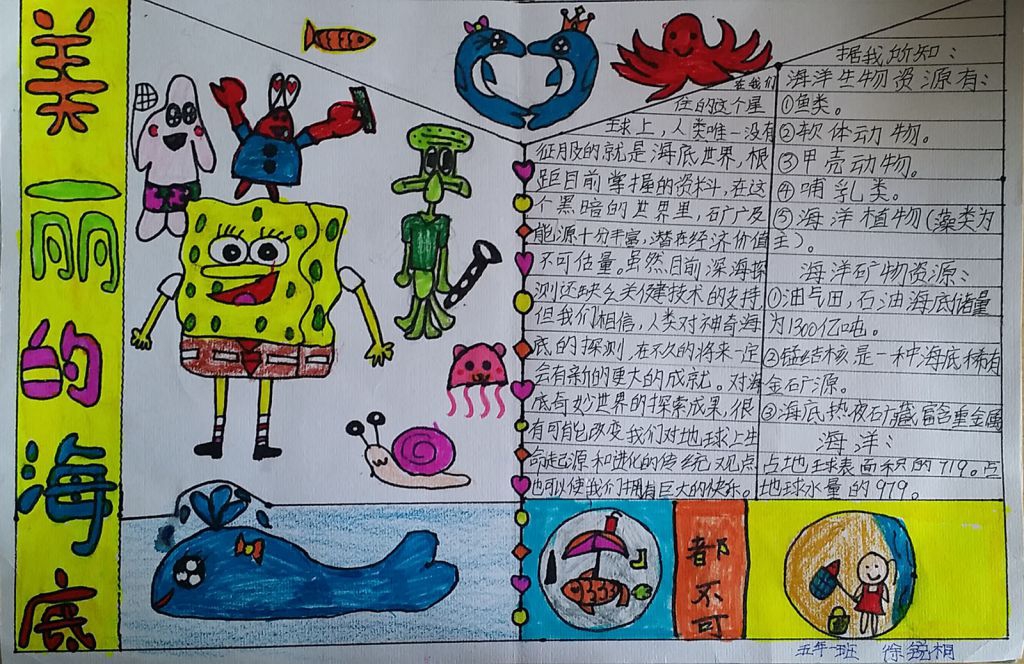 美丽的海底
在我们
住的这个星
球上，人类唯一没有
征服的就是海底世界，根
距目前掌握的资料，在这
个黑暗的世界里，矿广及
能源十分丰富，潜在经济价值
不可估量。虽然目前深海探
测还缺乏关键技术的支持
但我们相信，人类对神奇海
底的探测，在不久的将来一定
会有新的更大的成就。对海
底奇妙世界的探索成果，很
有可能改变我们对地球上生
命起源和进化的传统观点
也可以使我们拥有巨大的快乐。
据我所知：
海洋生物资源有：
①鱼类。
②软体动物。
③甲壳动物。
④哺乳类。
⑤海洋植物(藻类为
主)。
海洋矿物资源：
①油气田，石油海底储量
为1300亿吨。
②锰结核是一种海底稀有
金石矿源。
③海底热液矿藏富含重金属
海洋：
占地球表面积的719。占
地球水量的979。
都不可
五年一班 徐 桐